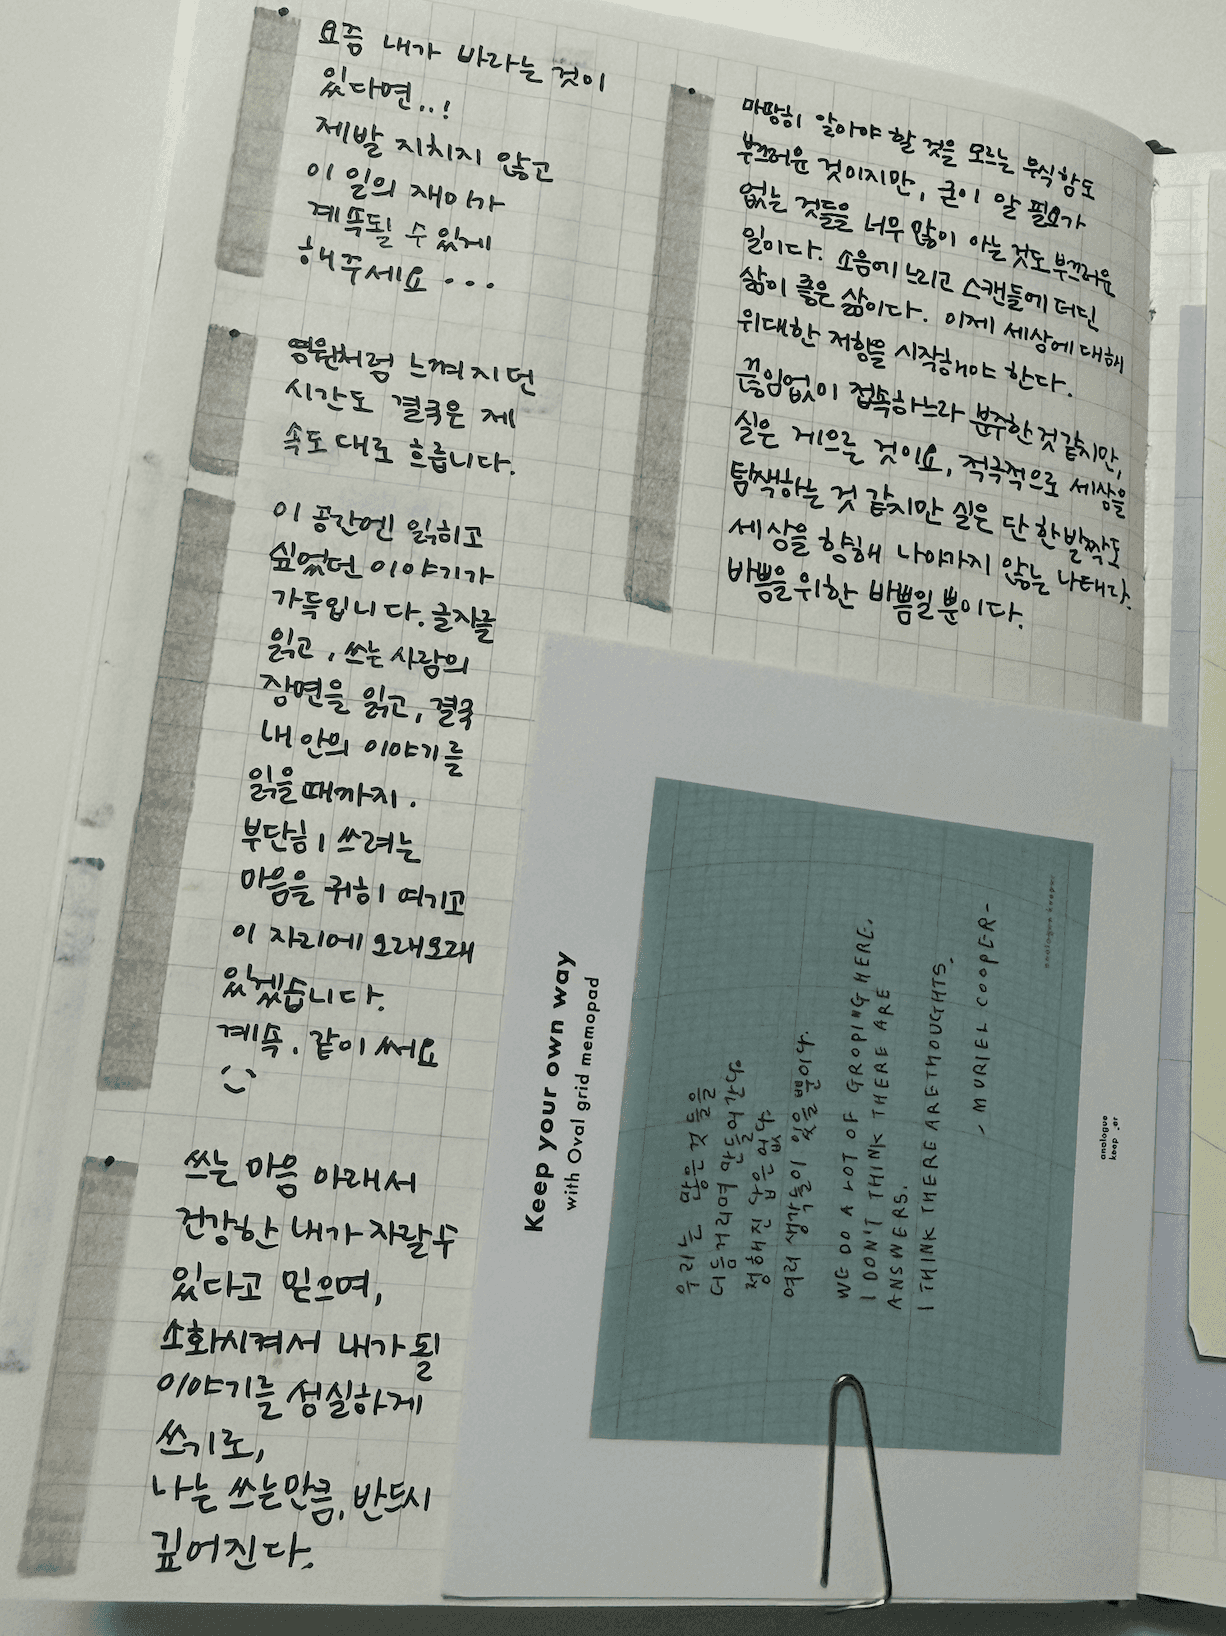 요즘 내가 바라는 것이
있다면..!
제발 지치지 않고
이 일의 재미가
계속될 수 있게
해주세요...
영원처럼 느껴지던
시간도 결국은 제
속도대로 흐릅니다.
이 공간엔 읽히고
싶었던 이야기가
가득입니다. 글자를
읽고, 쓰는 사람의
장면을 읽고, 결국
내 안의 이야기를
읽을 때까지.
부단히 쓰려는
마음을 귀히 여기고
이 자리에 오래오래
있겠습니다.
계속, 같이 써요
쓰는 마음 아래서
건강한 내가 자랄 수
있다고 믿으며,
소화시켜서 내가 될
이야기를 성실하게
쓰기로,
나는 쓰는만큼, 반드시
깊어진다.
마땅히 알아야 할 것을 모르는 무식함도
부끄러운 것이지만, 굳이 알 필요가
없는 것들을 너무 많이 아는 것도 부끄러운
일이다. 소음에 느리고 스캔들에 더딘
삶이 좋은 삶이다. 이제 세상에 대해
위대한 저항을 시작해야 한다.
끊임없이 접속하느라 분주한 것 같지만,
실은 게으를 것이요, 적극적으로 세상을
탐색하는 것 같지만 실은 단 한 발짝도
세상을 향해 나아가지 않는 나태다.
바쁨을 위한 바쁨일 뿐이다.
Keep your own way
with Oval grid memopad
우리는 많은 것들을
더듬거리며 만들어간다.
정해진 답은 없다
여러 생각들이 있을 뿐이다.
WE DO A LOT OF GROPING HERE.
I DON'T THINK THERE ARE
ANSWERS.
I THINK THERE ARE THOUGHTS.
- MURIEL COOPER -
analogue keeper
analogue
keep_er